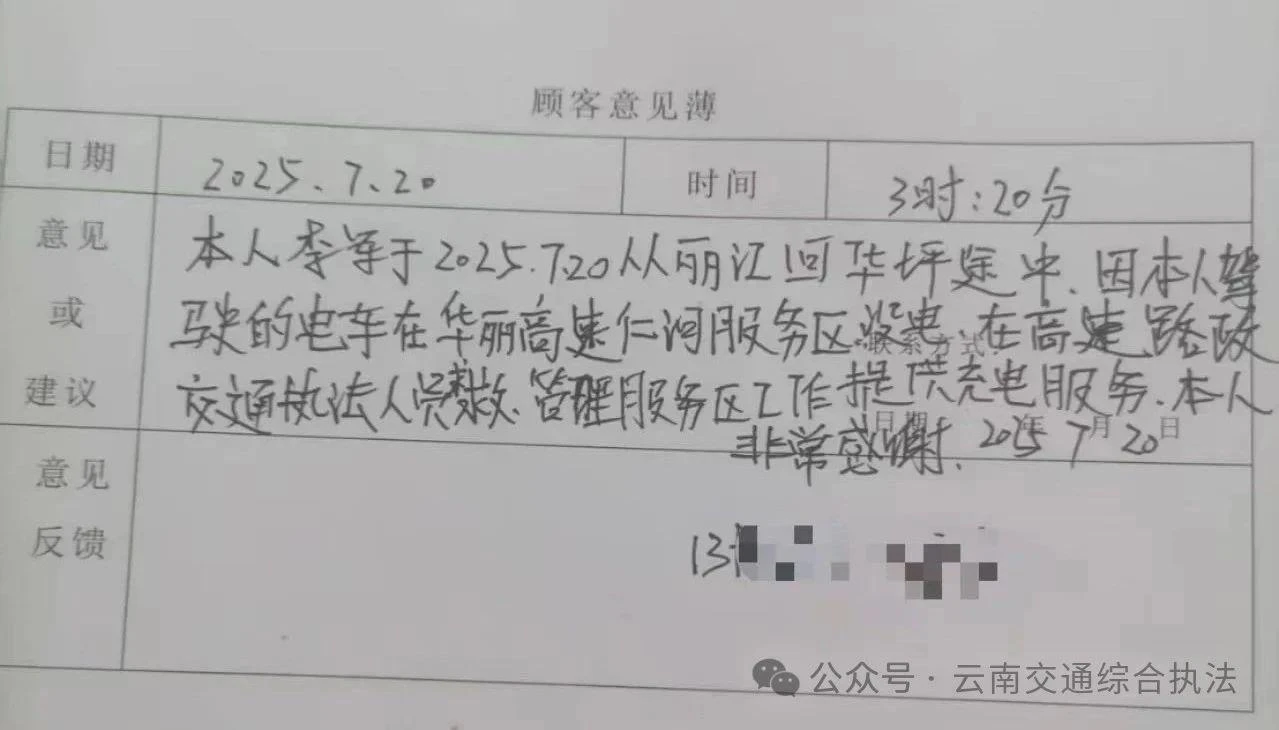 顾客意见薄
日期 2025.7.20 时间 3时:20分
意见或建议
本人李军于2025.7.20从丽江回华坪途中.因本人驾
驶的电车在华丽高速仁河服务区没电.在高速路政
交通执法人员 管理服务区工作提供充电服务.本人
非常感谢.2025 7月20日
联系方式
日期 年
意见反馈
13
公众号·云南交通综合执法